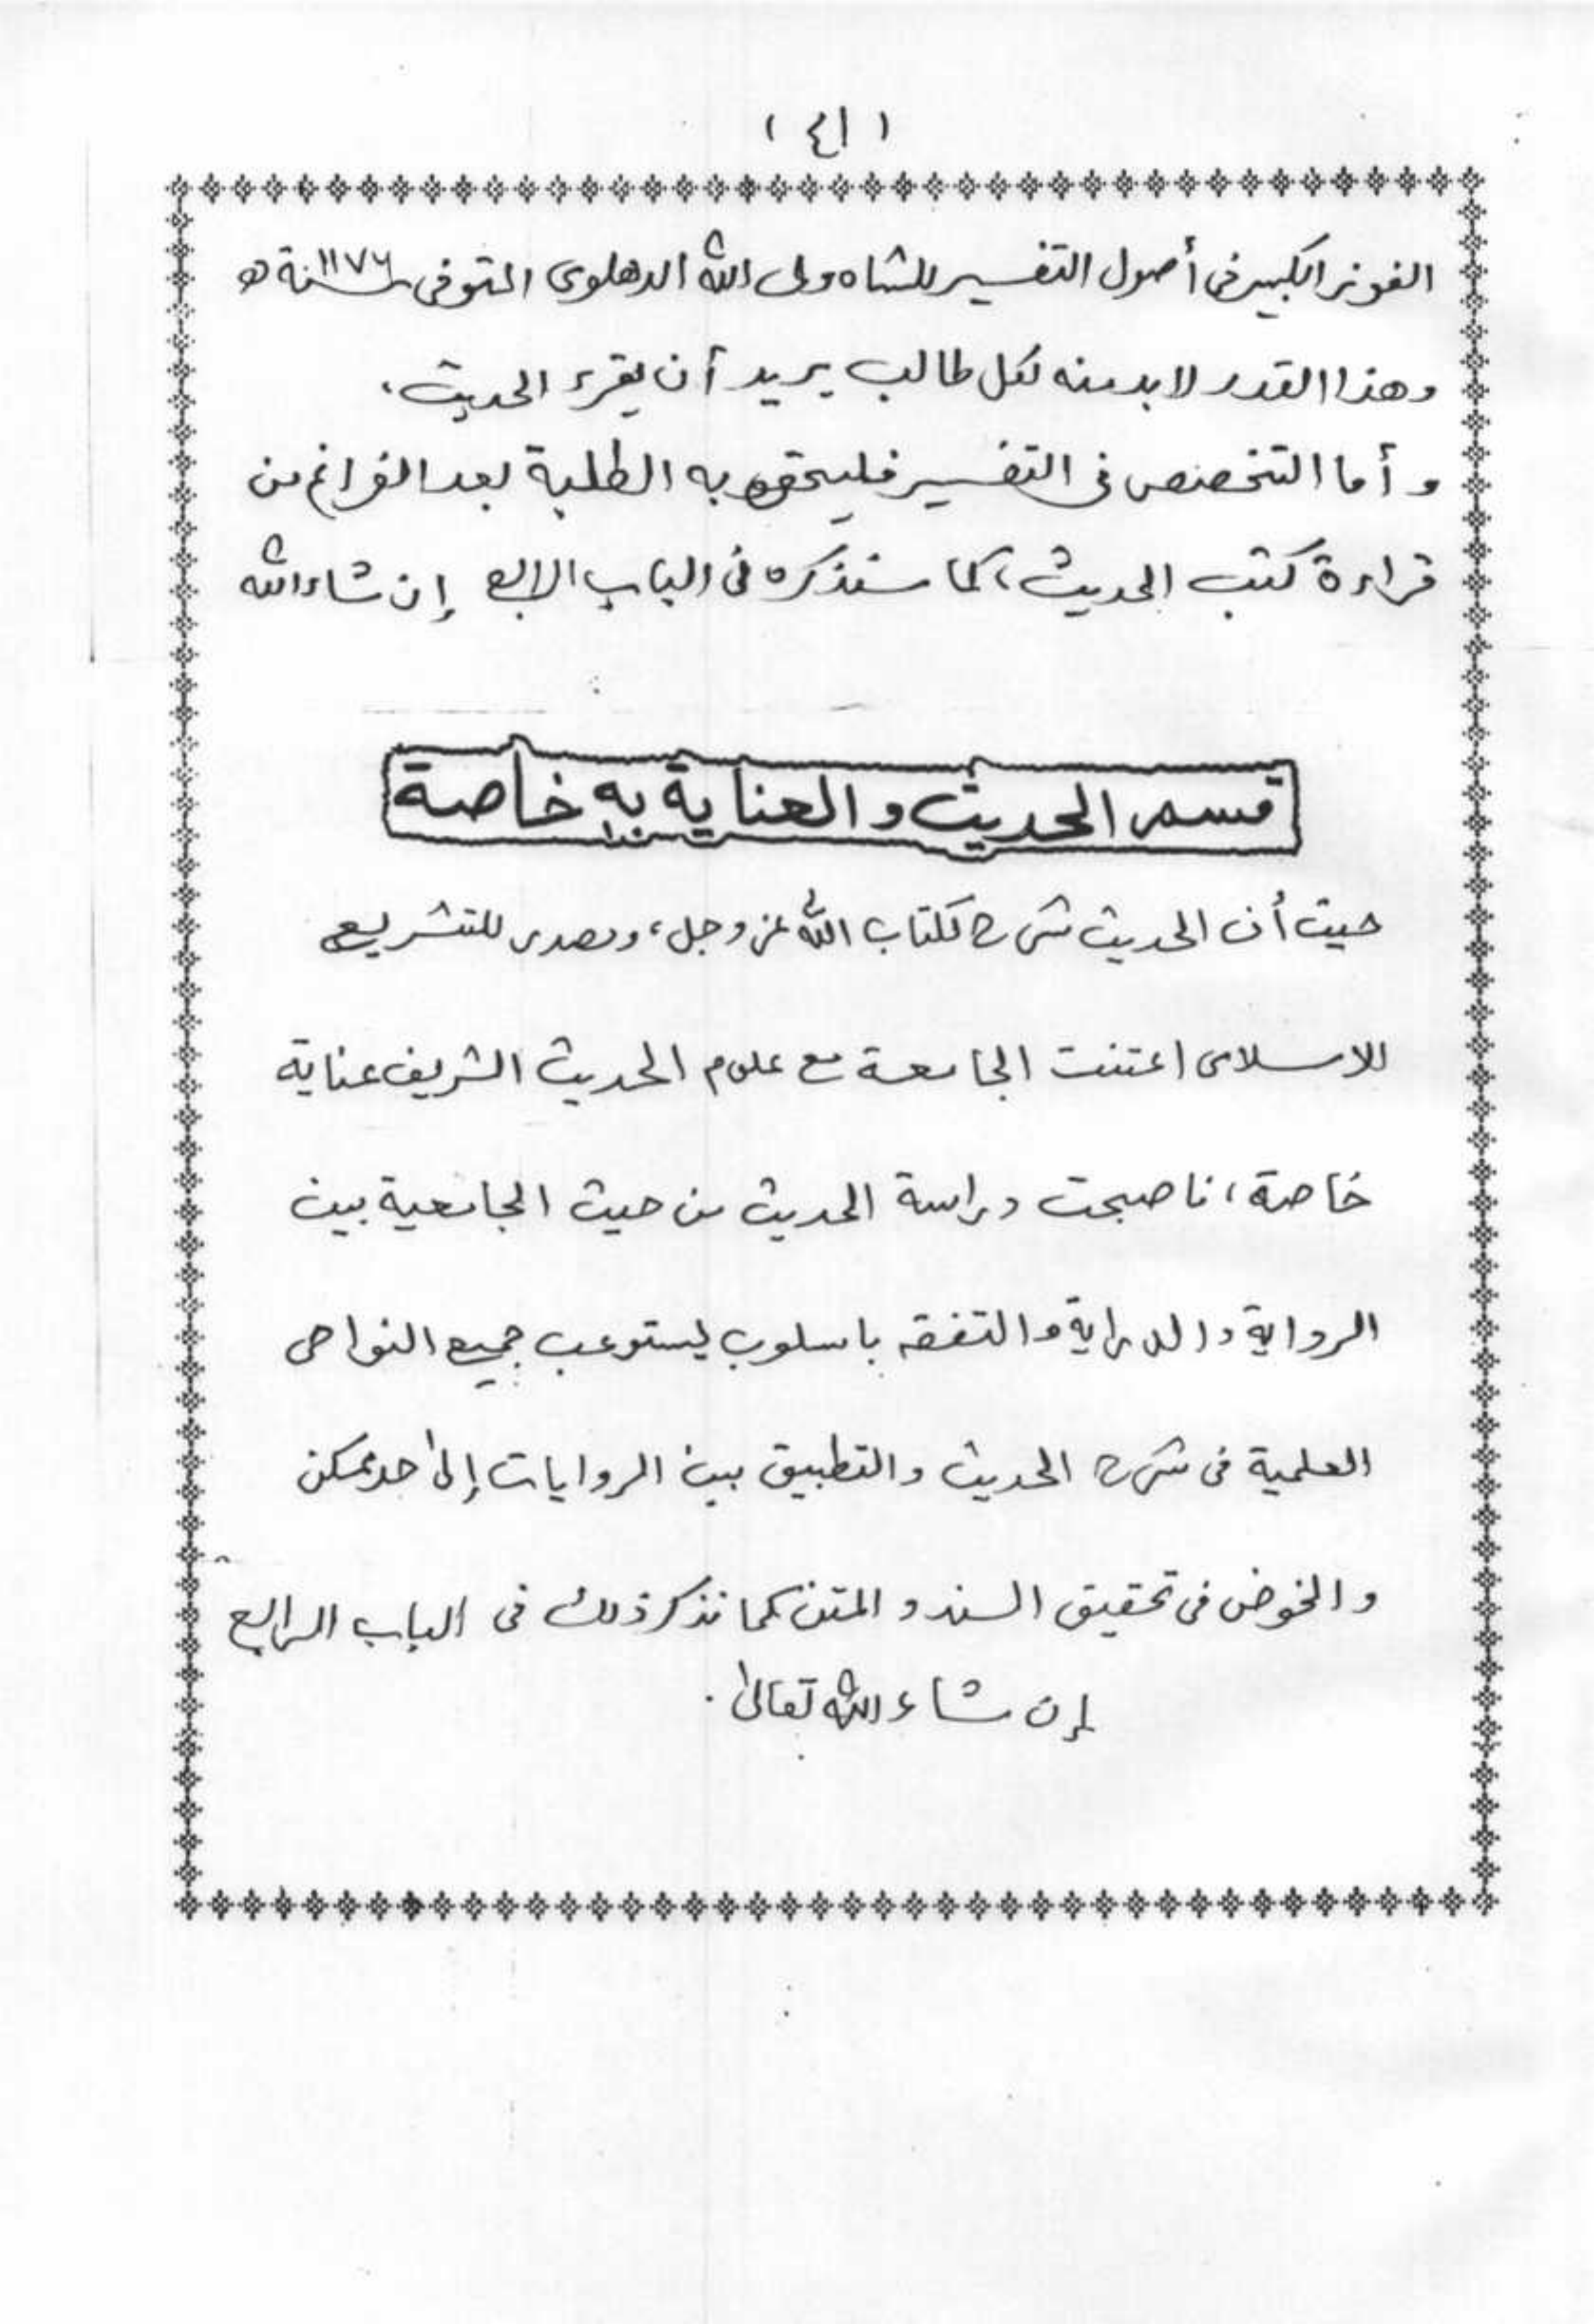 ( ٤١ )
الفوز الكبير فى أصول التفسير للشاه ولى الله الدهلوى المتوفى سنة ١١٧٦ ھ
وهذا القدر لا بد منه لكل طالب يريد أن يقرء الحديث،
وأما التخصص فى التفسير فليحق به الطلبة بعد الفراغ من
قراءة كتب الحديث، كما سنذكره فى الباب الرابع إن شاء الله
قسم الحديث والعناية به خاصة
حيث أن الحديث شرح لكتاب الله عز وجل، ومصدر للتشريع
الاسلامى اعتنت الجامعة مع علوم الحديث الشريف عناية
خاصة، فاصبحت دراسة الحديث من حيث الجامعية بين
الرواية والدراية والتفقه باسلوب يستوعب جميع النواحى
العلمية فى شرح الحديث والتطبيق بين الروايات إلى حد ممكن
والخوض فى تحقيق السند والمتن كما نذكر ذلك فى الباب الرابع
إن شاء الله تعالى .